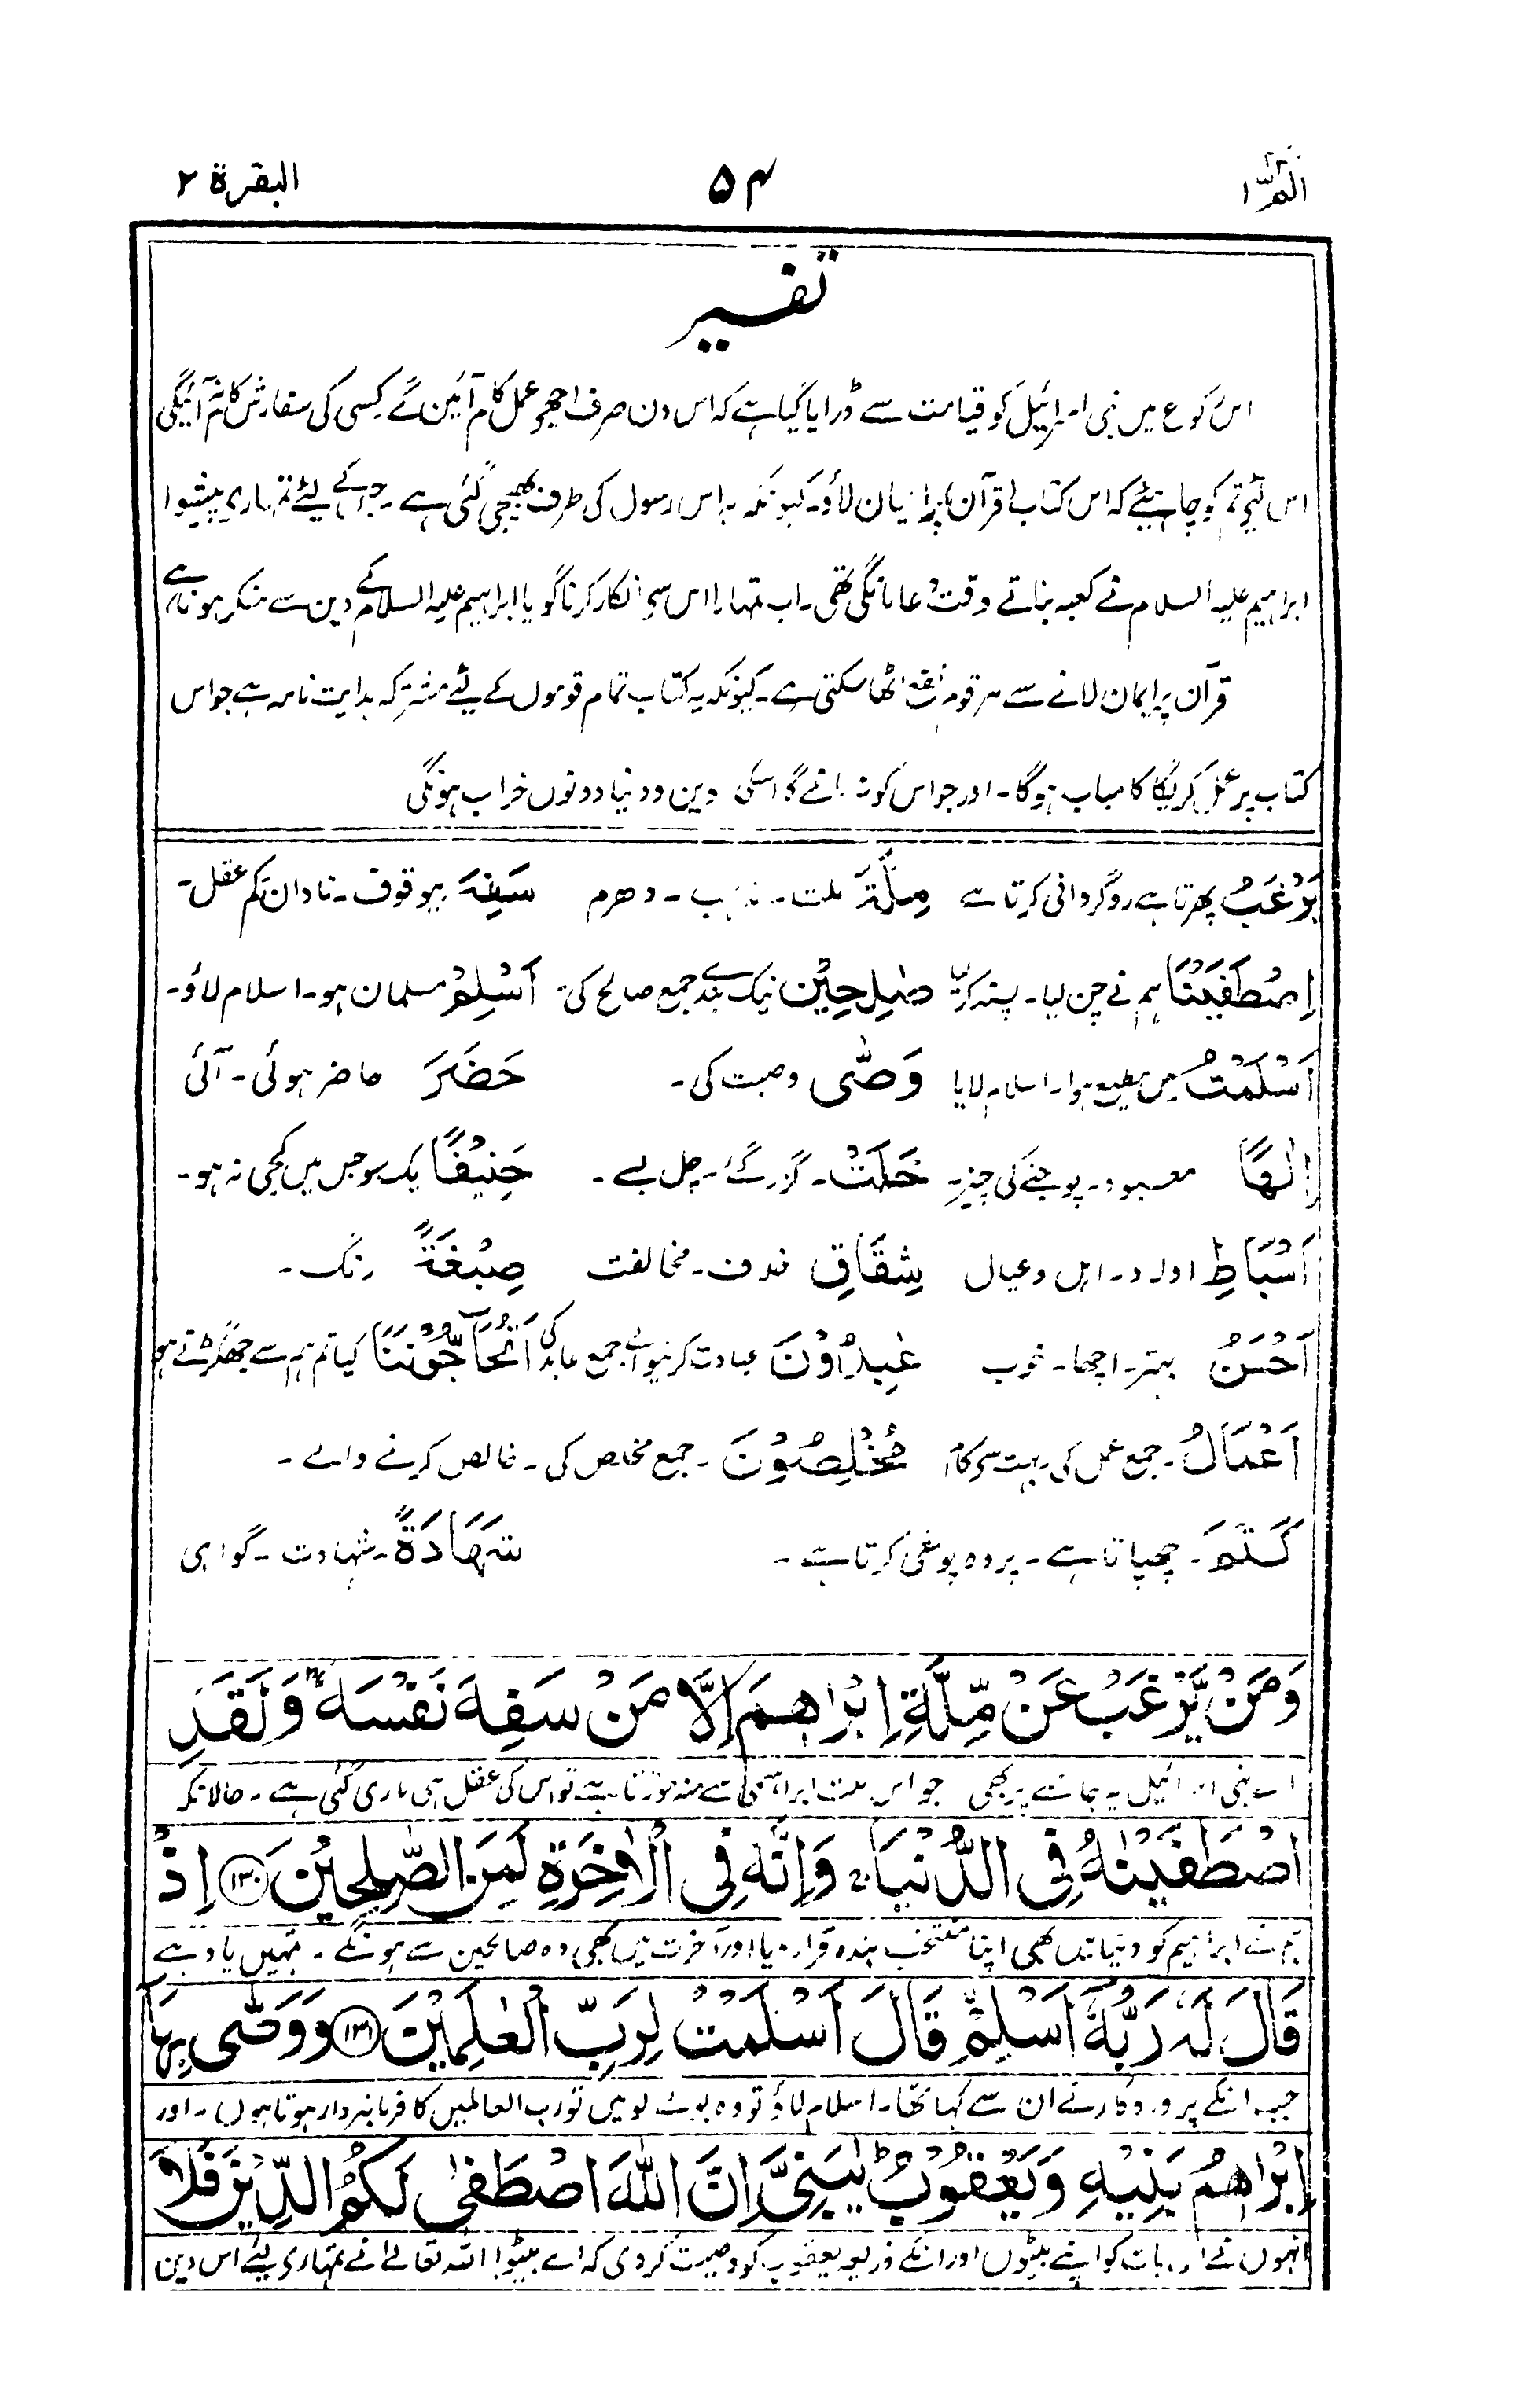 الٓمّٓ ۱ ۵۴ البقرة ۲
تفسیر
اس رکوع میں بنی اسرائیل کو قیامت سے ڈرایا گیا ہے کہ اس دن صرف اچھے عمل کام آئیں گے کسی کی سفارش کام نہ آئیگی
اس لئے تم کو چاہئیے کہ اس کتاب (قرآن) پر ایمان لاؤ۔ کیونکہ یہ اس رسول کی طرف بھیجی گئی ہے۔ جس کے لیئے تمہارے پیشوا
ابراہیم علیہ السلام نے کعبہ بناتے وقت دعا مانگی تھی۔ اب تمہارا اس سے انکار کرنا گویا ابراہیم علیہ السلام کے دین سے منکر ہونا ہے
قرآن پر ایمان لانے سے ہر قوم نفع اٹھا سکتی ہے۔ کیونکہ یہ کتاب تمام قوموں کے لئے مشترکہ ہدایت نامہ ہے جو اس
کتاب پر عمل کریگا کامیاب ہوگا۔ اور جو اس کو نہ مانے گا اسکی دین و دنیا دونوں خراب ہونگی
یَرْغَبُ پھرتا ہے روگردانی کرتا ہے مِلَّةَ ملت۔ مذہب۔ دھرم سَفِهَ بیوقوف۔ نادان کم عقل۔
اِصْطَفَیْنَا ہم نے چن لیا۔ پسند کر لیا صٰلِحِیْن نیک بندے جمع صالح کی۔ اَسْلِمْ مسلمان ہو۔ اسلام لاؤ۔
اَسْلَمْتُ میں مطیع ہوا۔ اسلام لایا وَصّٰی وصیت کی۔ حَضَرَ حاضر ہوئی۔ آئی
اِلٰهًا معبود۔ پوجنے کی چیز۔ خَلَتْ۔ گزر گئے۔ چل بسے۔ حَنِیْفًا یک سو جس میں کجی نہ ہو۔
اَسْبَاطِ اولاد۔ اہل و عیال شِقَاقٍ خلاف۔ مخالفت صِبْغَةً رنگ۔
اَحْسَنُ بہتر۔ اچھا۔ خوب عٰبِدُوْنَ عبادت کرنیوالے جمع عابد کی اَتُحَآجُّوْنَنَا کیا تم ہم سے جھگڑتے ہو
اَعْمَالُ۔ جمع عمل کی بہت سے کام مُخْلِصُوْنَ۔ جمع مخلص کی۔ خالص کرنے والے۔
كَتَمَ۔ چھپاتا ہے۔ پردہ پوشی کرتا ہے۔ شَهَادَةً۔ شہادت۔ گواہی
وَمَنْ یَّرْغَبُ عَنْ مِّلَّةِ اِبْرٰهٖمَ اِلَّا مَنْ سَفِهَ نَفْسَهٗ ؕ وَلَقَدِ
اے بنی اسرائیل یہ جاننے پر بھی جو اس ملت ابراہیمی سے منہ موڑتا ہے تو اس کی عقل ہی ماری گئی ہے۔ حالانکہ
اصْطَفَیْنٰهُ فِی الدُّنْیَا ۚ وَاِنَّهٗ فِی الْاٰخِرَةِ لَمِنَ الصّٰلِحِیْنَ ﴿۱۳۰﴾ اِذْ
ہم نے ابراہیم کو دنیا میں بھی اپنا منتخب بندہ قرار دیا اور آخرت میں بھی وہ صالحین سے ہونگے۔ تمہیں یاد ہے
قَالَ لَهٗ رَبُّهٗۤ اَسْلِمْ ۙ قَالَ اَسْلَمْتُ لِرَبِّ الْعٰلَمِیْنَ ﴿۱۳۱﴾ وَوَصّٰی بِهَاۤ
جب انکے پروردگار نے ان سے کہا تھا۔ اسلام لاؤ تو وہ بولے لو میں تو رب العالمین کا فرمانبردار ہوتا ہوں۔ اور
اِبْرٰهٖمُ بَنِیْهِ وَیَعْقُوْبُ ؕ یٰبَنِیَّ اِنَّ اللّٰهَ اصْطَفٰی لَكُمُ الدِّیْنَ فَلَا
انہوں نے اس بات کو اپنے بیٹوں اور انکے ذریعہ یعقوب کو وصیت کر دی کہ اے بیٹو! اللہ تعالےٰ نے تمہارے لیئے اس دین